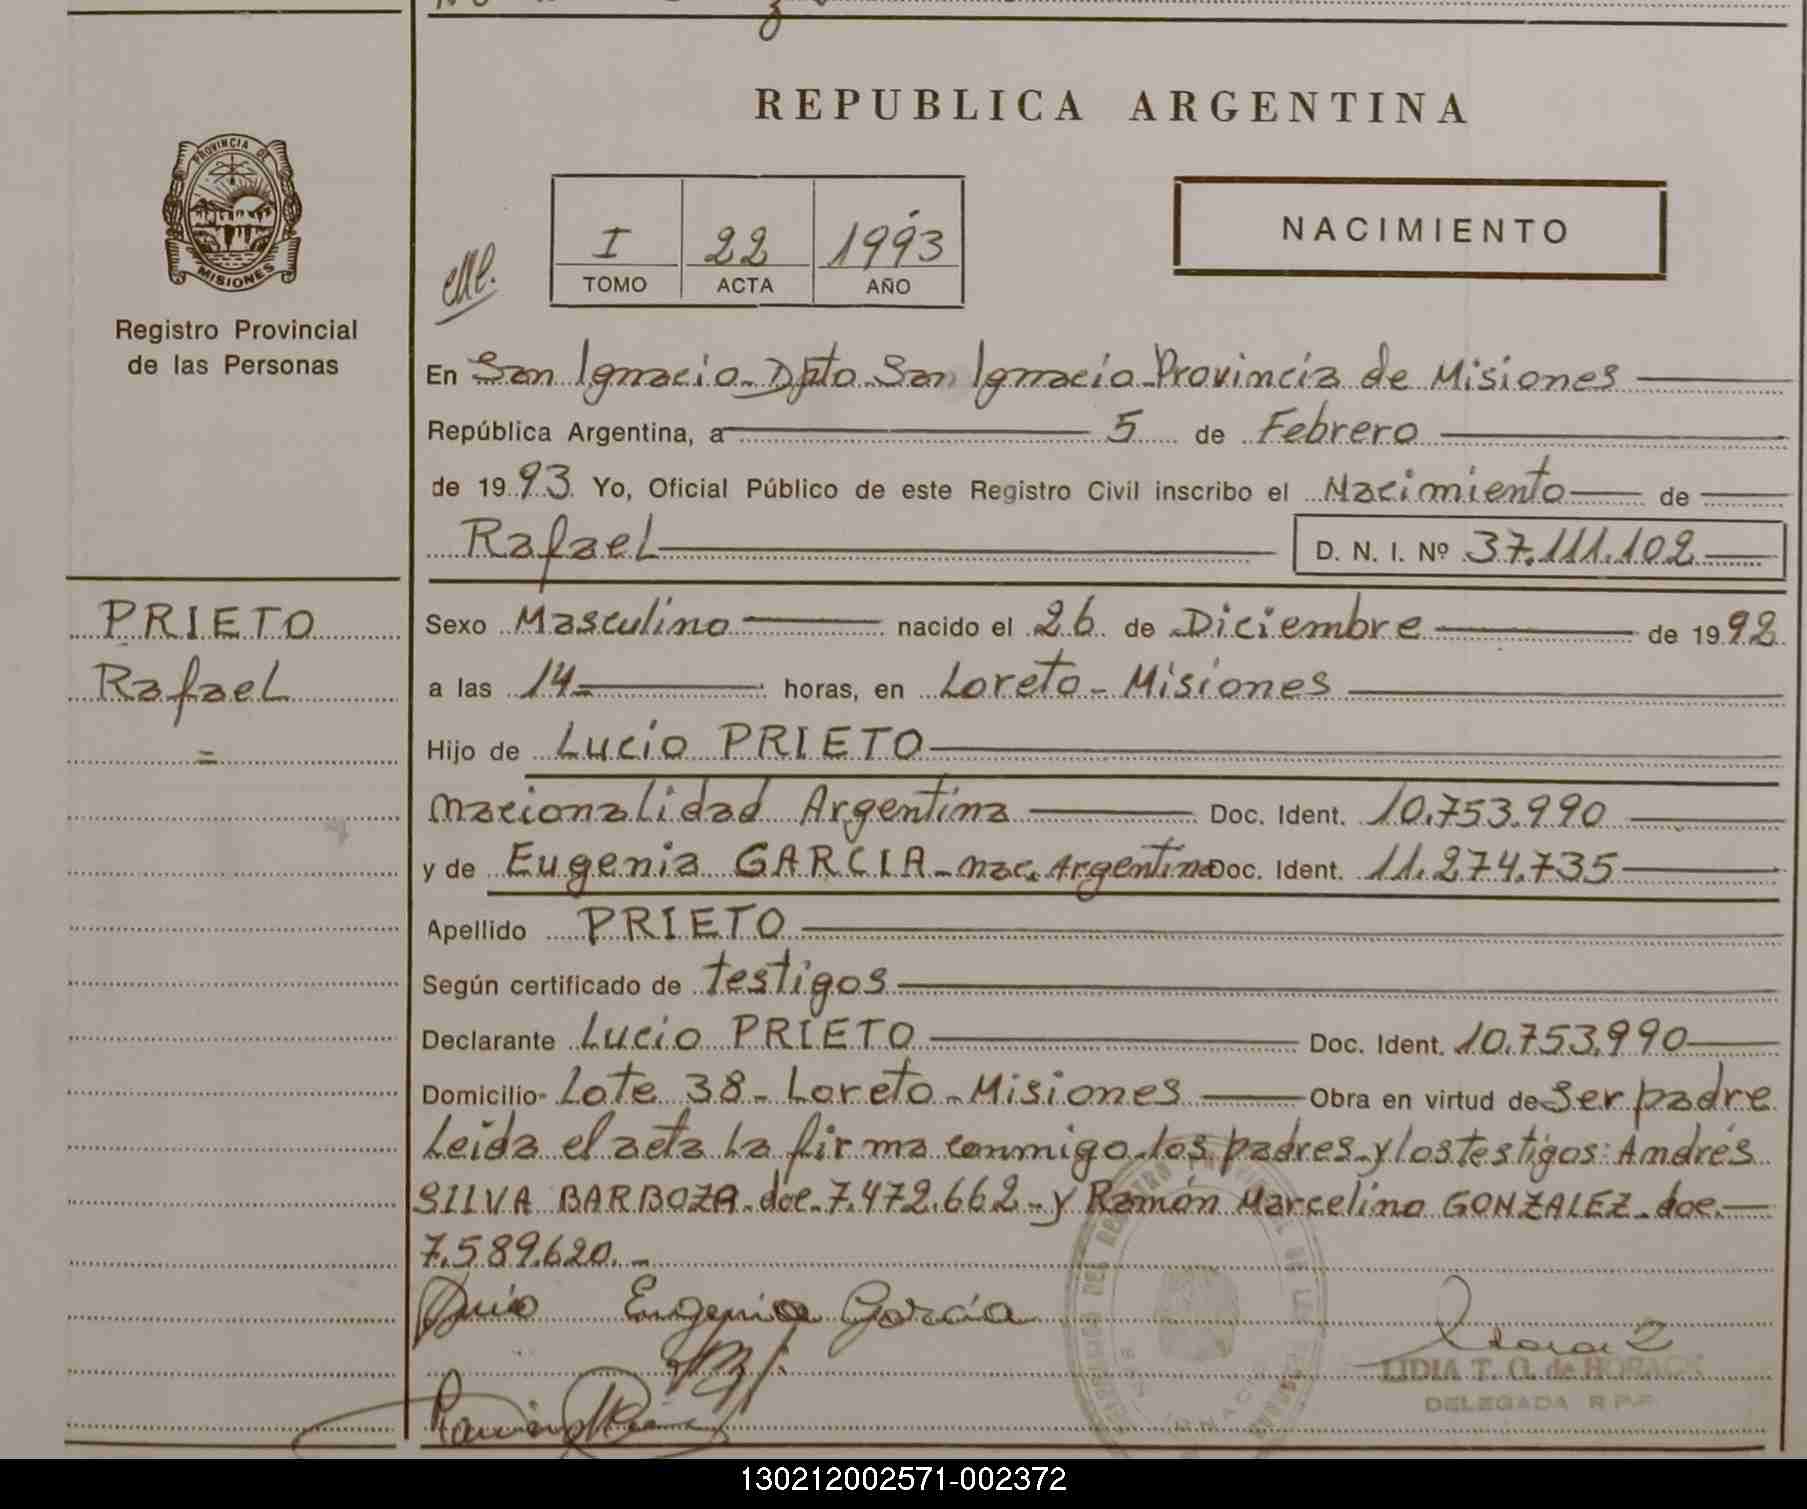 REPUBLICA ARGENTINA
PROVINCIA DE
MISIONES
Registro Provincial
de las Personas
I 22 1993
TOMO ACTA AÑO
NACIMIENTO
En San Ignacio - Dpto San Ignacio - Provincia de Misiones
República Argentina, a 5 de Febrero
de 1993 Yo, Oficial Público de este Registro Civil inscribo el Nacimiento de
Rafael D. N. I. Nº 37.111.102
PRIETO
Rafael
=
Sexo Masculino nacido el 26 de Diciembre de 1992
a las 14 horas, en Loreto - Misiones
Hijo de Lucio PRIETO
nacionalidad Argentina Doc. Ident. 10.753.990
y de Eugenia GARCIA - nac. Argentina Doc. Ident. 11.274.735
Apellido PRIETO
Según certificado de testigos
Declarante Lucio PRIETO Doc. Ident. 10.753.990
Domicilio Lote 38 - Loreto - Misiones Obra en virtud de Ser padre
Leída el acta La firma conmigo los padres y los testigos: Andrés
SILVA BARBOZA - doc. 7.472.662 - y Ramón Marcelino GONZALEZ - doc.
7.589.620. -
Eugenia García
LIDIA T. G. de
DELEGADA R.P.P.
130212002571-002372